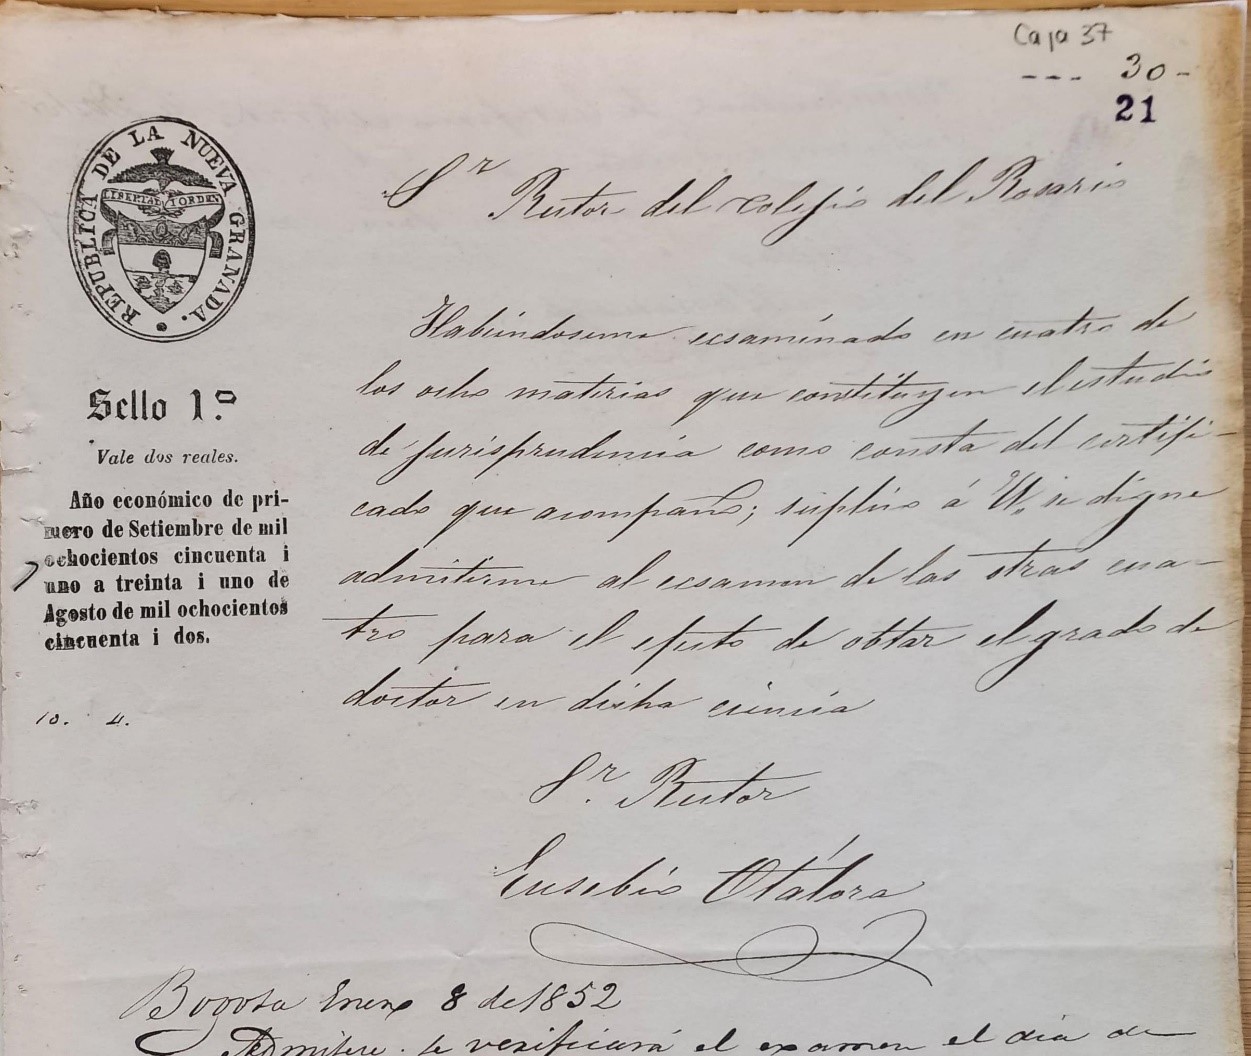 Caja 37
--- 30-
21
REPUBLICA DE LA NUEVA GRANADA.
LIBERTAD I ORDEN
Sello 1.º
Vale dos reales.
Año económico de pri-
mero de Setiembre de mil
ochocientos cincuenta i
uno a treinta i uno de
Agosto de mil ochocientos
cincuenta i dos.
10. 4.
Sr Rector del colegio del Rosario
Habiendoseme ecsaminado en cuatro de
los ocho materias que constituyen el estudio
de jurisprudencia como consta del certifi-
cado que acompaño; suplico á U. se digne
admitirme al ecsamen de las otras cua-
tro para el efecto de obtar el grado de
doctor en dicha ciencia
Sr. Rector
Eusebio Otálora
Bogota Enero 8 de 1852
Admitese. Se verificará el examen el dia de